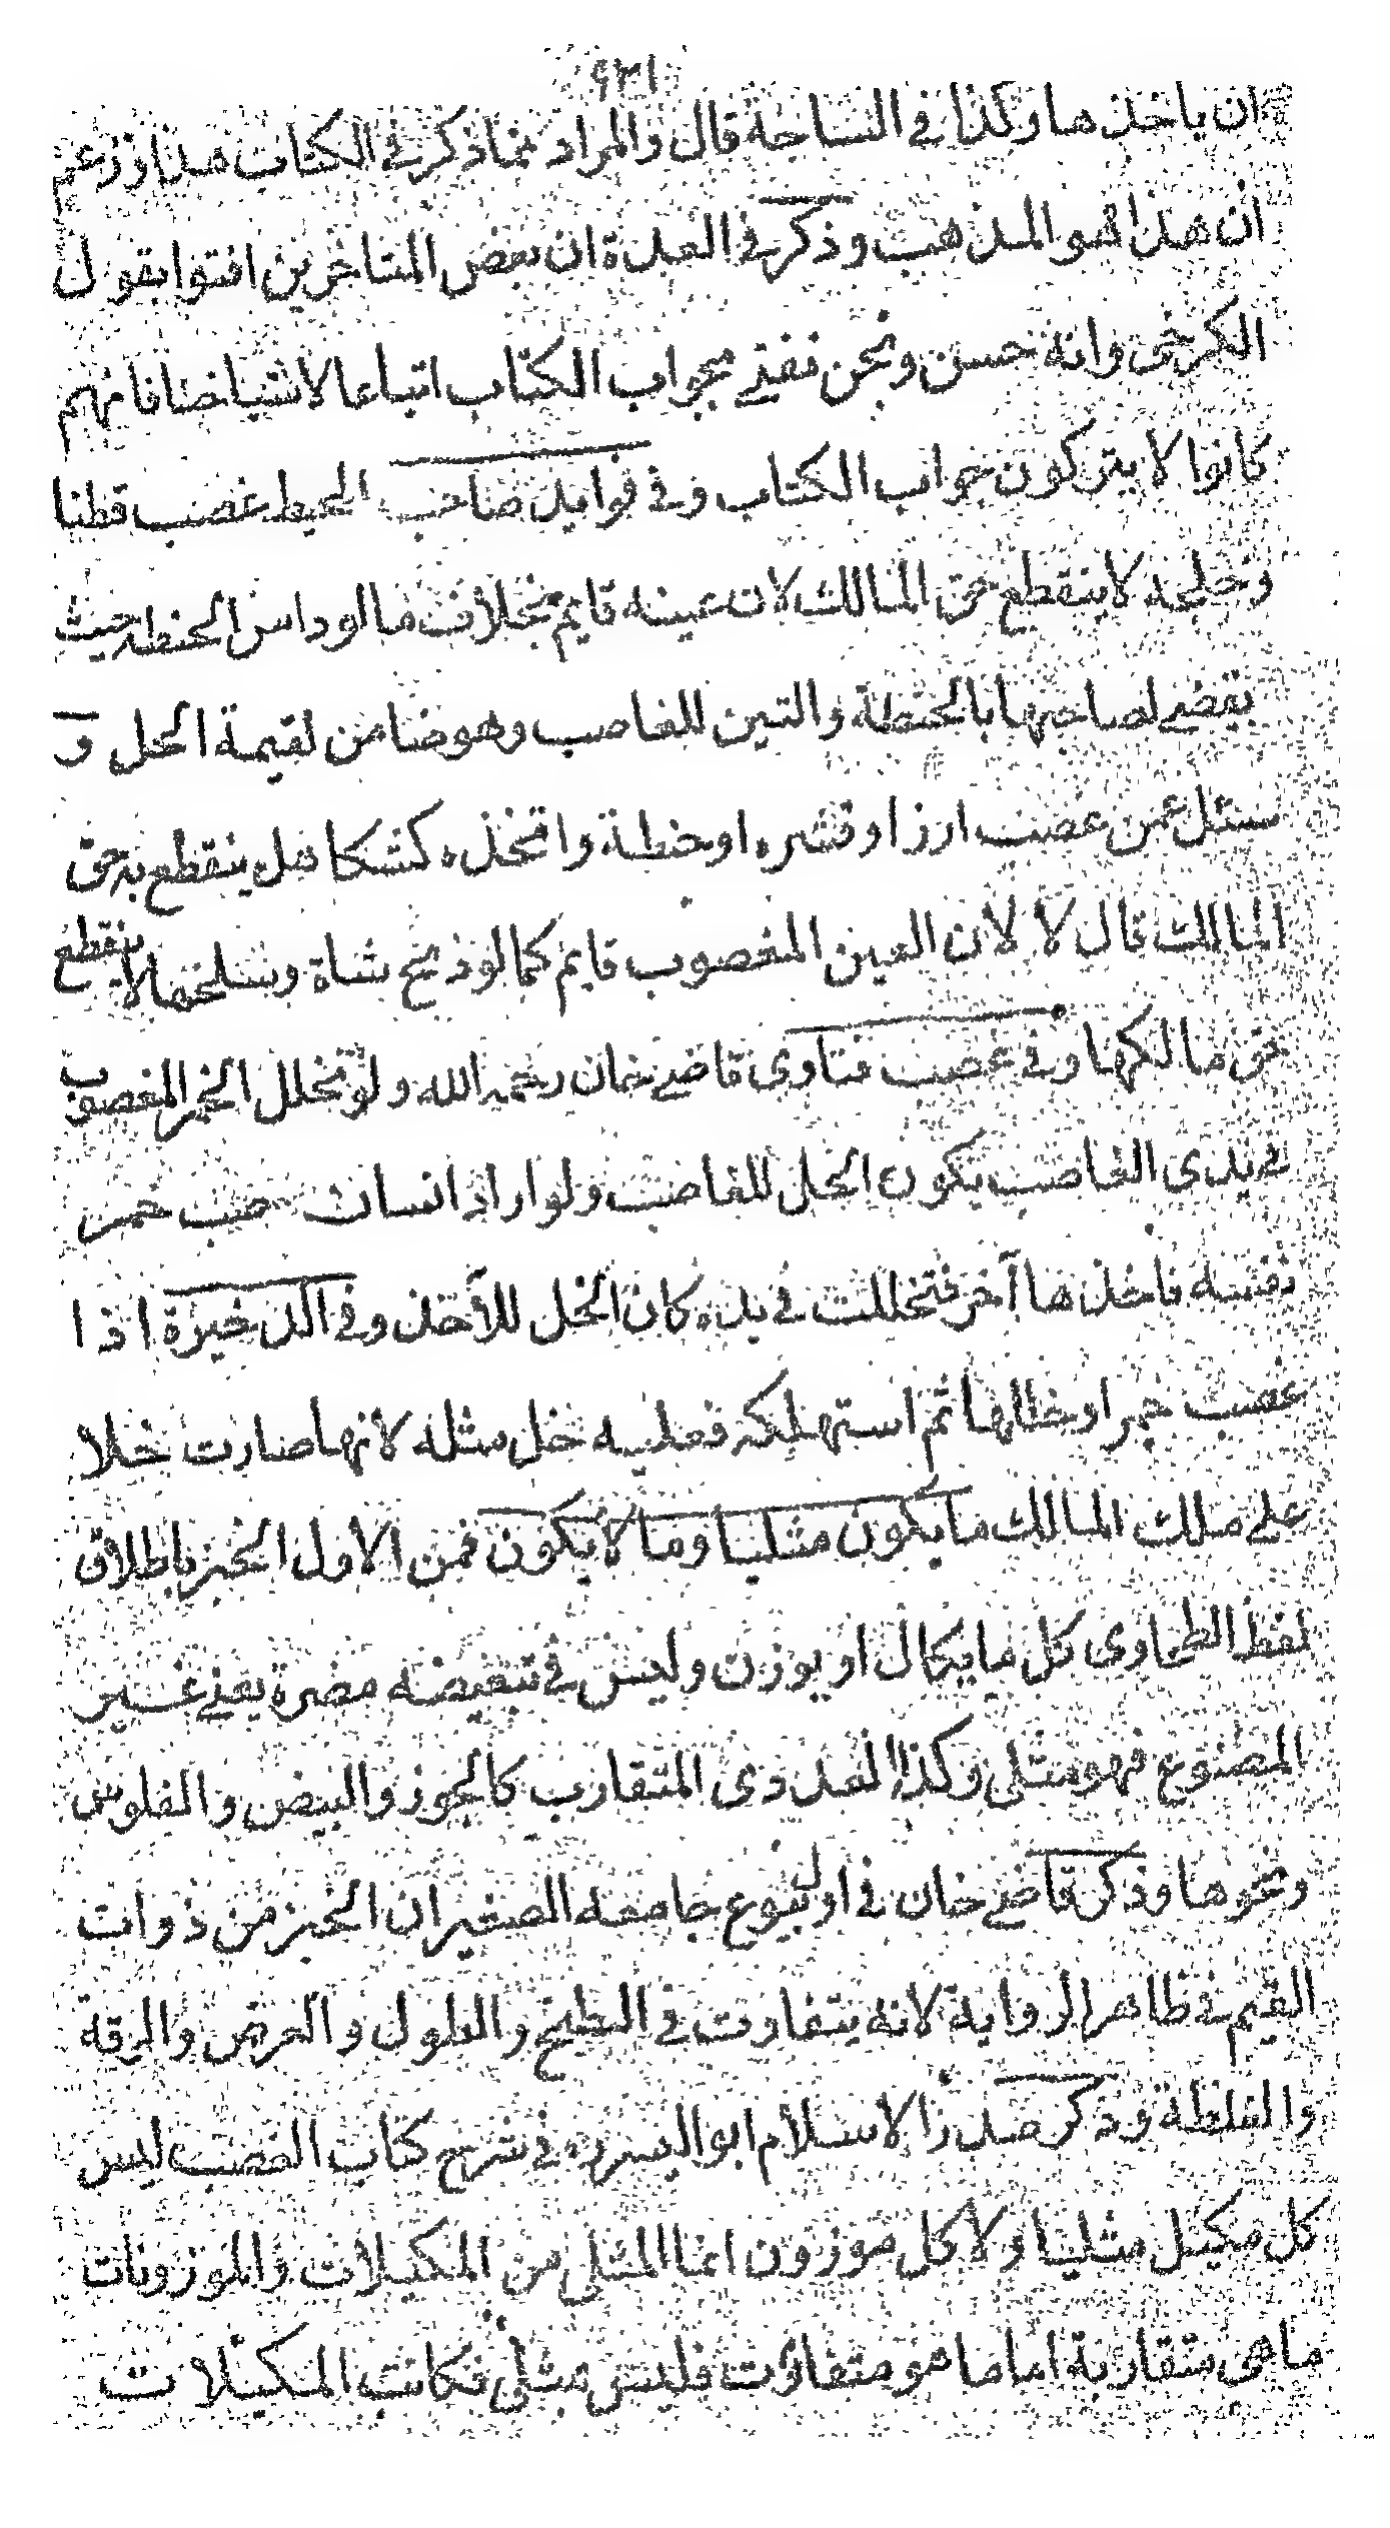 ٤٣١
ان ياخذها وكذا في الساحة قال والمراد مما ذكر في الكتاب هذا وزعم
ان هذا هو المذهب وذكر في العدة ان بعض المتاخرين افتوا بقول
الكرخي وانه حسن ونحن نفتي بجواب الكتاب اتباعا لاشياخنا فانهم
كانوا لا يتركون جواب الكتاب وفي فوايد صاحب المحيط غصب قطنا
وحلجه لا ينقطع حق المالك لان عينه قايم بخلاف ما لو داس الحنطه حيث
يقضي لصاحبها بالحنطة والتبن للغاصب وهو ضامن لقيمة الحل و
سئل عمن غصب ارزا وقشره او حنطة واتخذه كشكا هل ينقطع به حق
المالك قال لا لان العين المغصوب قايم كما لو ذبح شاة وسلخها لا ينقطع
حق مالكها وفي غصب فتاوى قاضي خان رحمه الله ولو تخلل الخمر المغصوب
في يدى الغاصب يكون الخل للغاصب ولو اراد انسان صب خمر
نفسه فاخذها آخر فتخللت في يده كان الخل للآخذ وفي الذخيرة اذا
غصب خمرا وخللها ثم استهلكه فعليه خل مثله لانها صارت خلا
على ملك المالك ما يكون مثليا وما لا يكون فمن الاول الخبز باطلاق
لفظ الطحاوى كل ما يكال او يوزن وليس في تبعيضه مضرة يعني غير
المصنوع فهو مثلى وكذا العددى المتقارب كالجوز والبيض والفلوس
ونحوها وذكر قاضي خان في اول بيوع جامعه الصغير ان الخبز من ذوات
القيم في ظاهر الرواية لانه يتفاوت في الطبخ والطول والعرض والرقة
والغلظة وذكر صدر الاسلام ابو اليسر ره في شرح كتاب الغصب ليس
كل مكيل مثليا ولا كل موزون انما المثلى من المكيلات والموزونات
ما هى متقاربة اما ما هو متفاوت فليس مثلى فكانت المكيلات